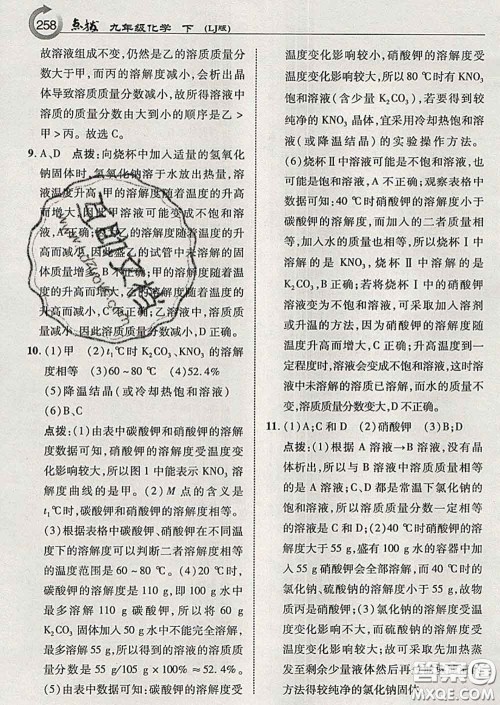 258 点拨 九年级化学 下 (LJ版)
故溶液组成不变，仍然是乙的溶质质量
分数大于甲，而丙的溶解度减小，会析出晶
体导致溶质质量分数变小，故所得溶液中
溶质的质量分数由大到小的顺序是乙
＞甲＞丙。故选 C。
9. A、D 点拨：向烧杯中加入适量的氢氧化
钠固体时，氢氧化钠溶于水放出热量，
溶液温度升高，甲的溶解度随着温度的升高
而增大，因此甲溶液可能变成不饱和溶
液，A 正确；乙的溶解度随着温度的升
高而减小，因此盛乙的试管中未溶解的固
体质量增多，B 正确；甲的溶解度随着温
度的升高而增大，C 正确；乙溶液，溶质质量
减小，因此溶质质量分数减小，D 正确。
10. (1)甲 (2)t₁℃时 K₂CO₃、KNO₃ 的溶解
度相等 (3)60～80 ℃ (4)52.4%
(5)降温结晶(或冷却热饱和溶液)
(6)B、C
点拨：(1)由表中碳酸钾和硝酸钾的溶解
度数据可知，硝酸钾的溶解度受温度变
化影响较大，所以图 1 中能表示 KNO₃
溶解度曲线的是甲。(2) M 点的含义是
t₁℃时，碳酸钾和硝酸钾的溶解度相等。
(3)根据表格中碳酸钾、硝酸钾在不同温
度下的溶解度可以判断二者溶解度相等
的温度范围是 60～80 ℃。(4)20 ℃时，
碳酸钾的溶解度是 110 g，即 100 g 水中
最多溶解 110 g 碳酸钾，所以将 60 g
K₂CO₃ 固体加入 50 g 水中充分溶解，
最多溶解 55 g，所以得到的溶液的溶质质
量分数是 55 g/105 g×100%≈52.4%。
(5)由表中数据可知，碳酸钾的溶解度受
温度变化影响较小，硝酸钾的溶解度受
温度变化影响较大，所以 80 ℃时有 KNO₃
饱和溶液(含少量 K₂CO₃)，若要得到较
纯净的 KNO₃ 晶体，宜采用冷却热饱和溶
液(或降温结晶)的实验操作方法。
(6)烧杯Ⅱ中溶液可能是不饱和溶液，也
可能是饱和溶液，A 不正确；观察表格中
数据可知：40 ℃时硝酸钾的溶解度小于
碳酸钾的溶解度，而加入的二者质量相
等，加入水的质量也相等，所以烧杯Ⅰ中
的溶液是 KNO₃，烧杯Ⅱ中溶解的是
K₂CO₃，B 正确；若将烧杯Ⅰ中的硝酸钾
溶液变为不饱和溶液，可采取加入溶剂
或升温的方法，因为硝酸钾的溶解度受
温度变化影响较大，因此温度升高到一
定程度时，溶液会变成不饱和溶液，C 正
确；烧杯中未溶解的溶质已溶解，而水的质量不
变，因此溶质质量分数变大，D 不正确。
11. (1)A；C 和 D (2)硝酸钾 (3)B；D
点拨：(1)根据 A 溶液→B 溶液，没有晶
体析出，所以与 B 溶液中溶质质量分数
相等的是 A；C、D 都是常温下氯化钠的
饱和溶液，所以溶质质量分数一定相等
的溶液是 C 和 D；(2)40 ℃时，硝酸钾的
溶解度大于 55 g，盛有 100 g 水的容器中加
入 55 g 硝酸钾会全部溶解，而 40 ℃时的
氯化钠、硫酸钠的溶解度小于 55 g，故物
质是硝酸钾。(3)氯化钠的溶解度受温度
变化影响不大，而硝酸钾的溶解度受温
度变化影响较大，故可采用将溶液蒸发
至剩余少量液体然后再
方法得到较纯净的氯化钠固体。
答案圈
MXQE.COM